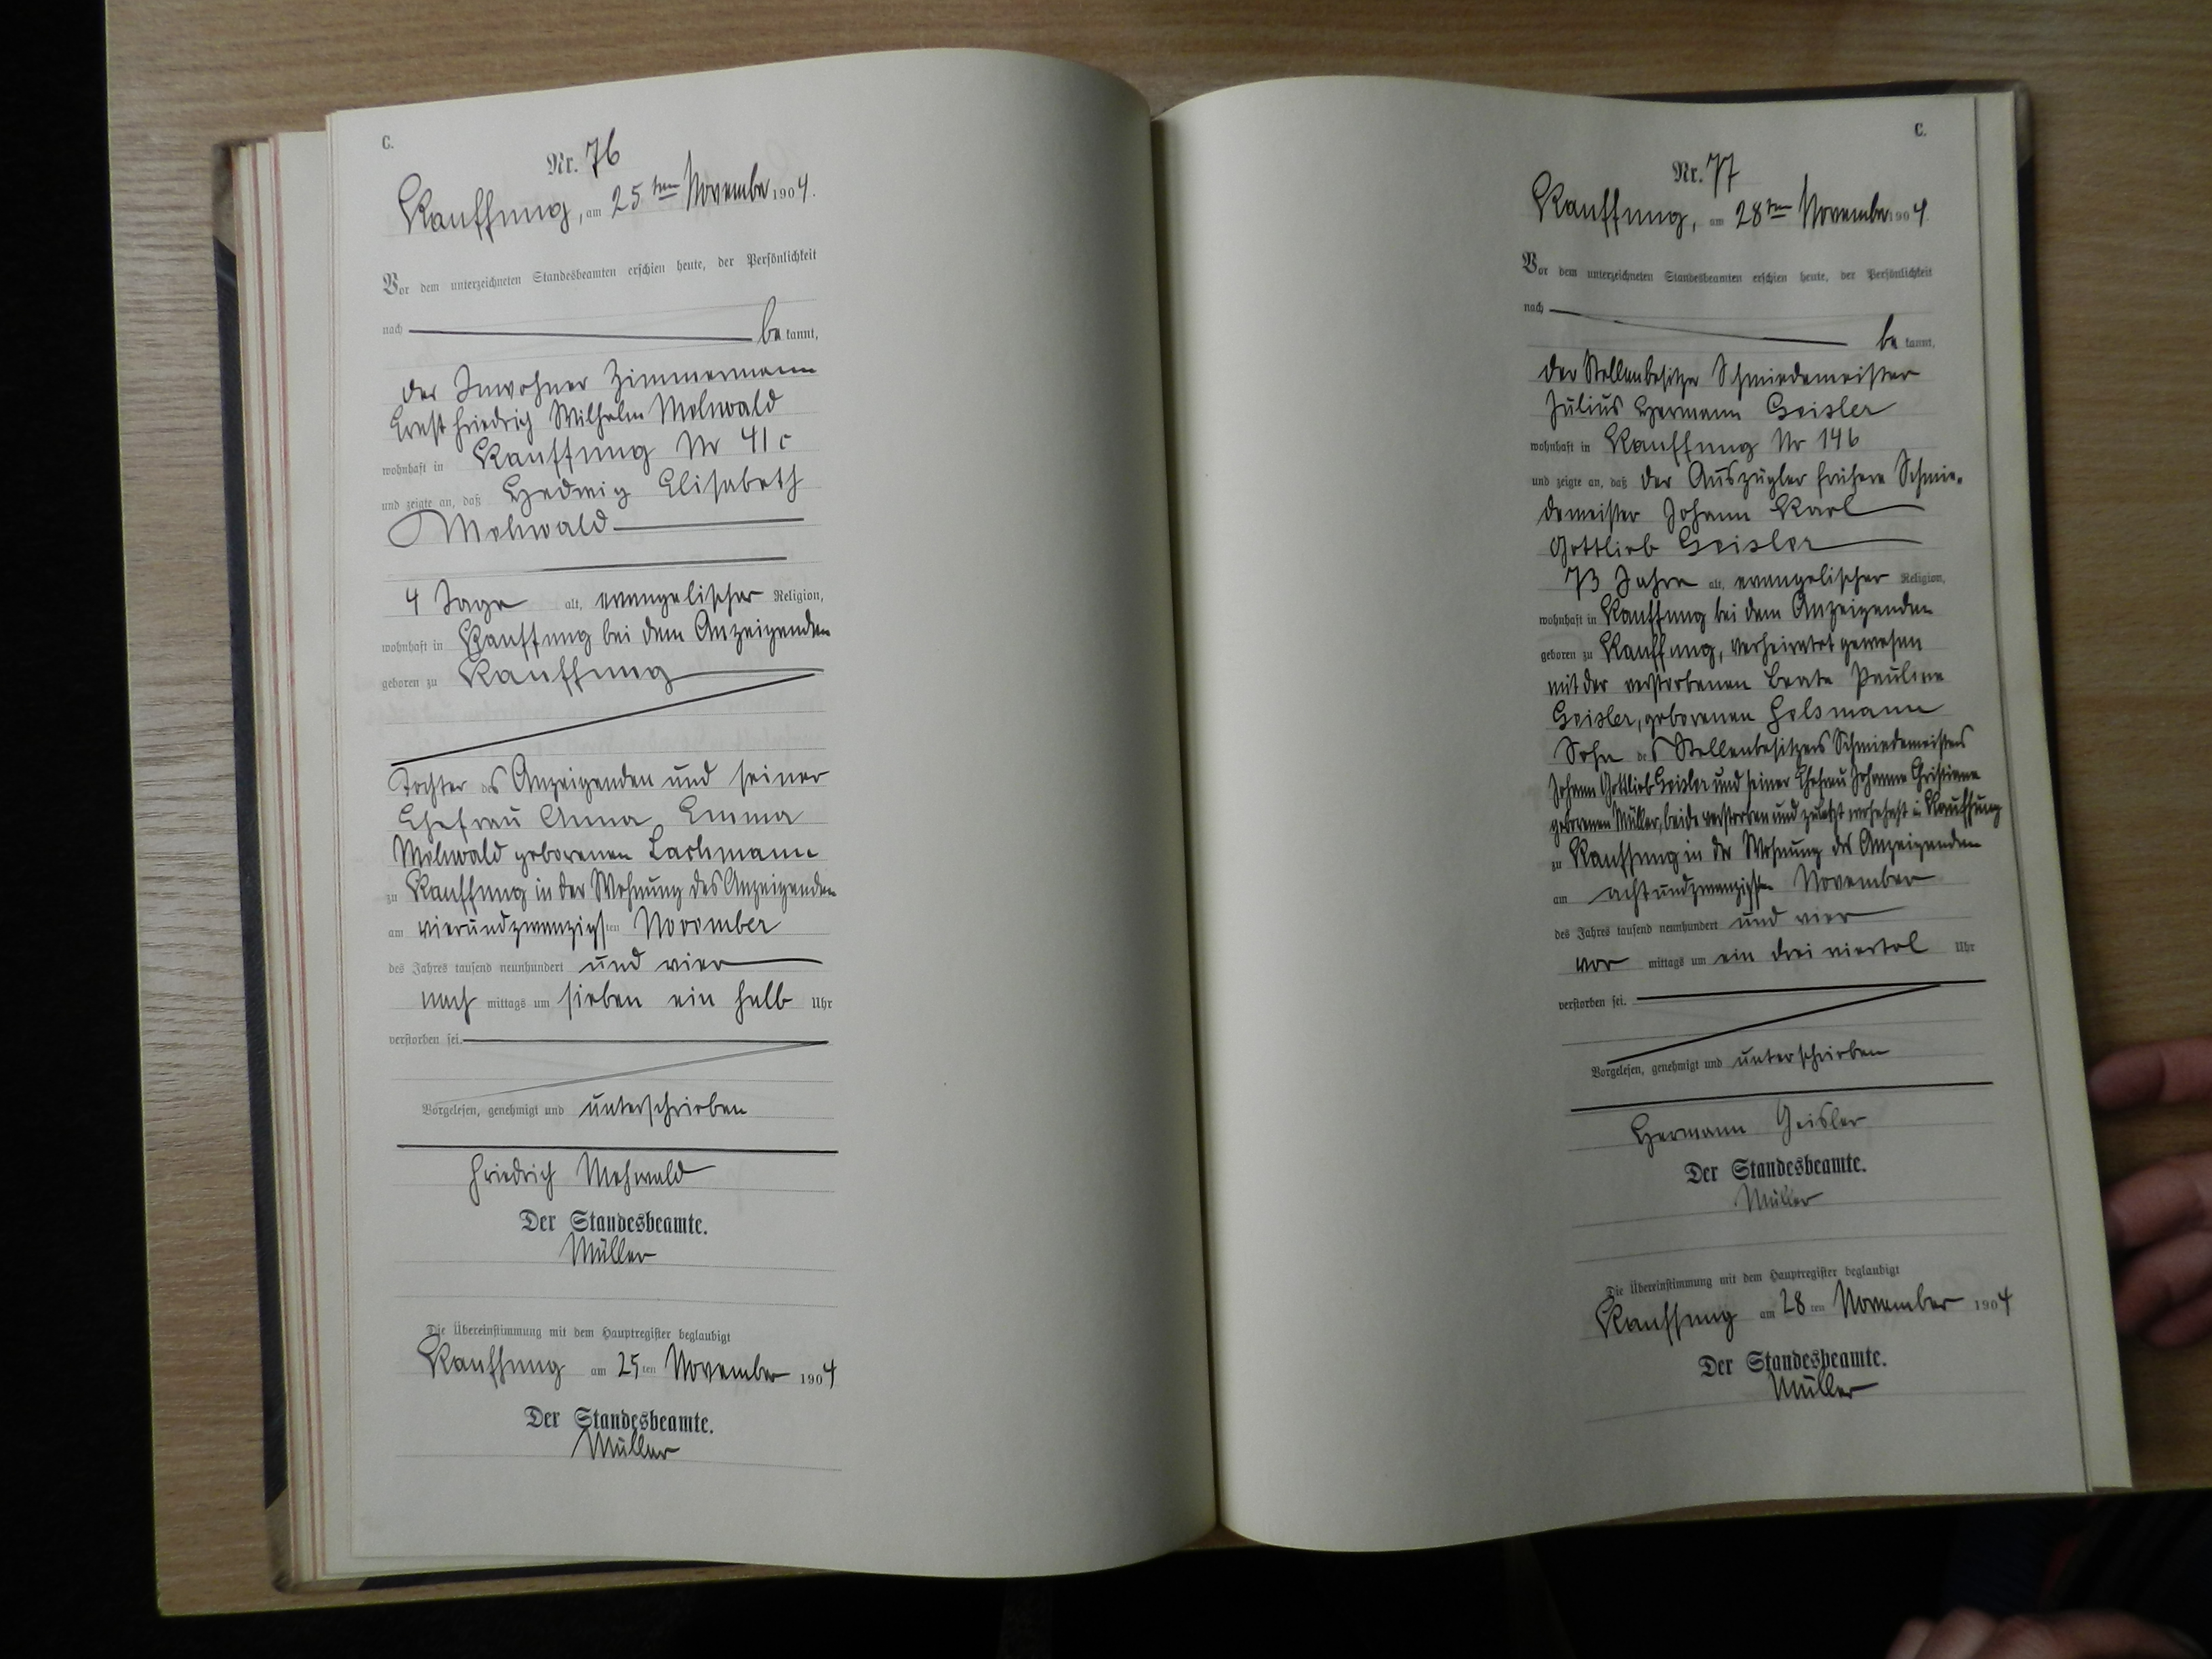 C.
Nr. 76
Kauffung, am 25ten November 1904.
Vor dem unterzeichneten Standesbeamten erschien heute, der Persönlichkeit
nach be kannt,
der Inwohner Zimmermann
Ernst Friedrich Wilhelm Mehwald
wohnhaft in Kauffung Nr 41c
und zeigte an, daß Hedwig Elisabeth
Mehwald
4 Tage alt, evangelischer Religion,
wohnhaft in Kauffung bei dem Anzeigenden
geboren zu Kauffung
Tochter des Anzeigenden und seiner
Ehefrau Anna Emma
Mehwald geborenen Lachmann
zu Kauffung in der Wohnung des Anzeigenden
am vierundzwanzigsten November
des Jahres tausend neunhundert und vier
nach mittags um sieben ein halb Uhr
verstorben sei.
Vorgelesen, genehmigt und unterschrieben
Friedrich Mehwald
Der Standesbeamte.
Müller
Die Übereinstimmung mit dem Hauptregister beglaubigt
Kauffung am 25ten November 1904
Der Standesbeamte.
Müller
C.
Nr. 77
Kauffung, am 28ten November 1904
Vor dem unterzeichneten Standesbeamten erschien heute, der Persönlichkeit
nach be kannt,
der Stellenbesitzer Schmiedemeister
Julius Hermann Geisler
wohnhaft in Kauffung Nr 146
und zeigte an, daß der Auszügler frühere Schmie-
demeister Johann Karl
Gottlieb Geisler
73 Jahre alt, evangelischer Religion,
wohnhaft in Kauffung bei dem Anzeigenden
geboren zu Kauffung, verheiratet gewesen
mit der verstorbenen Beate Pauline
Geisler, geborenen
Sohn des Stellenbesitzers Schmiedemeisters
Johann Gottlieb Geisler und seiner Ehefrau Johanne Christiane
geborenen Müller, beide verstorben und zuletzt wohnhaft in Kauffung
zu Kauffung in der Wohnung des Anzeigenden
am achtundzwanzigsten November
des Jahres tausend neunhundert und vier
vor mittags um ein drei viertel Uhr
verstorben sei.
Vorgelesen, genehmigt und unterschrieben
Hermann Geisler
Der Standesbeamte.
Müller
Die Übereinstimmung mit dem Hauptregister beglaubigt
Kauffung am 28ten November 1904
Der Standesbeamte.
Müller